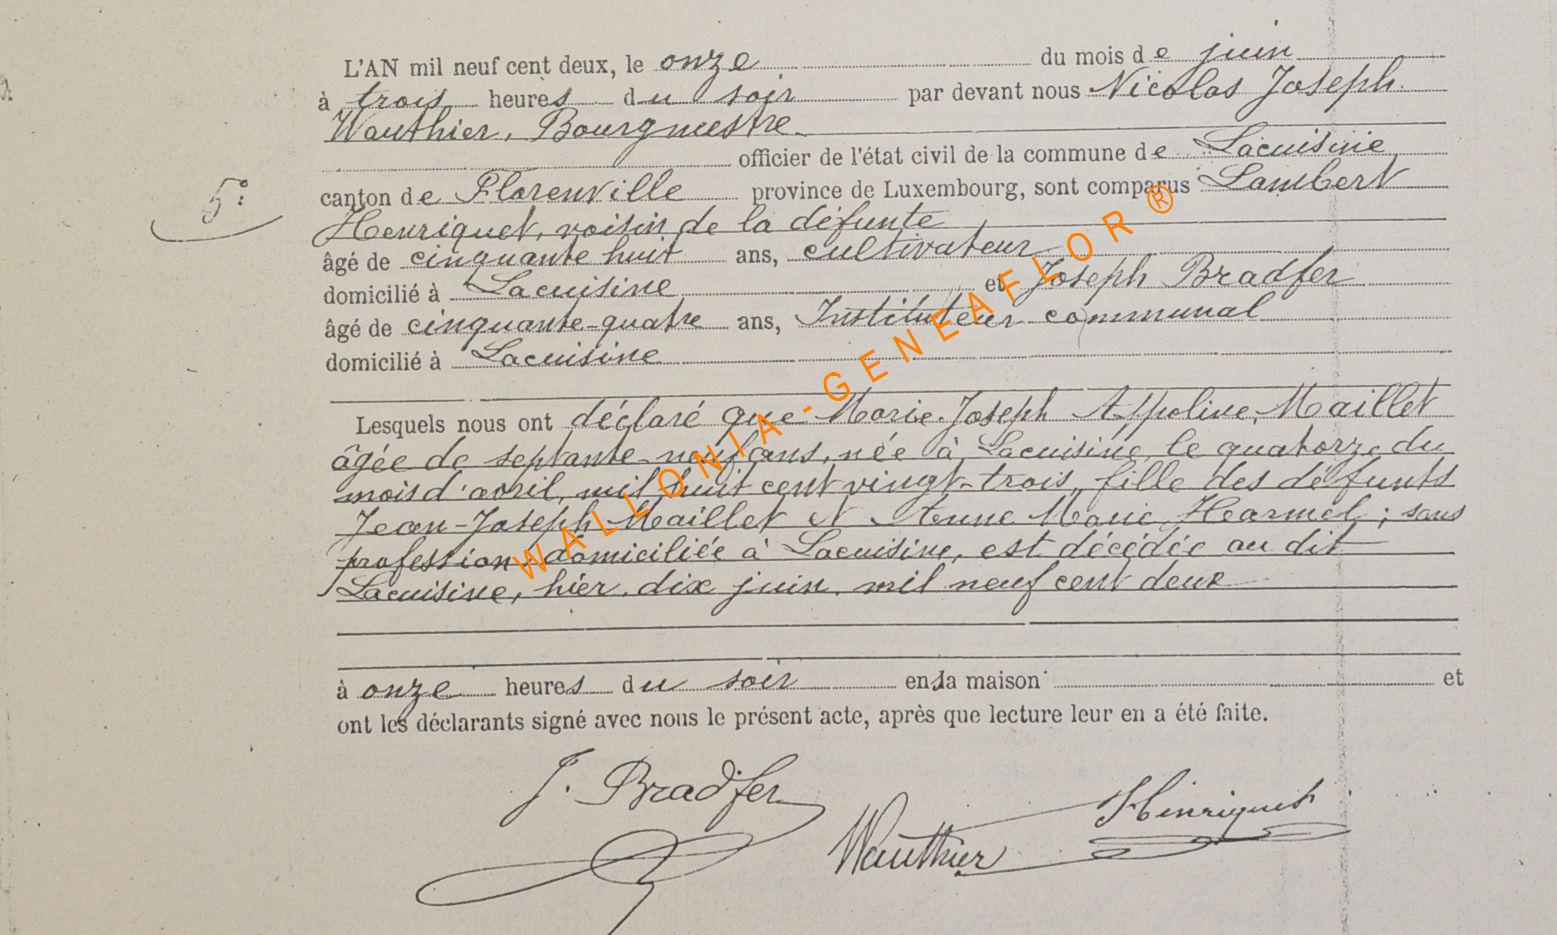 L'AN mil neuf cent deux, le onze du mois de juin
à trois heures du soir par devant nous Nicolas Joseph
Wauthier, Bourgmestre
officier de l'état civil de la commune de Lacuisine
5°
canton de Florenville province de Luxembourg, sont comparus Lambert
Henriquet, voisin de la défunte
âgé de cinquante huit ans, cultivateur
domicilié à Lacuisine et Joseph Bradfer
âgé de cinquante-quatre ans, Instituteur communal
domicilié à Lacuisine
Lesquels nous ont déclaré que Marie-Joseph Appoline, Maillet
âgée de septante neuf ans, née à Lacuisine, le quatorze du
mois d'avril, mil huit cent vingt-trois, fille des défunts
Jean-Joseph Maillet et Anne Marie Harmel ; sans
profession, domiciliée à Lacuisine, est décédée au dit
Lacuisine, hier, dix juin, mil neuf cent deux
à onze heures du soir en sa maison et
ont les déclarants signé avec nous le présent acte, après que lecture leur en a été faite.
J. Bradfer
Wauthier
Henriquet
WALLONIA-GENEAFLOR ®